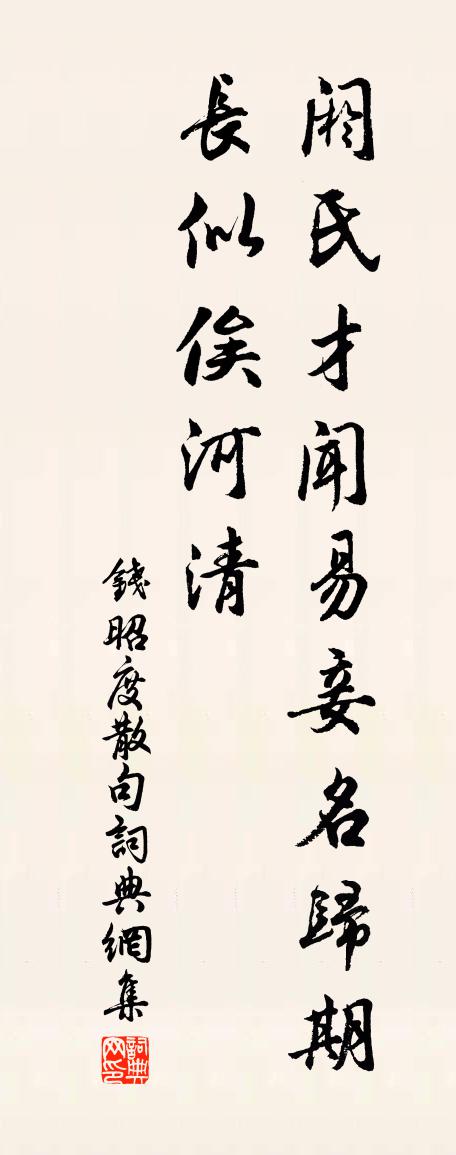 阏氏才闻易妾名歸期
長似俟河清
錢昭度散句詞典網集
詞典网印